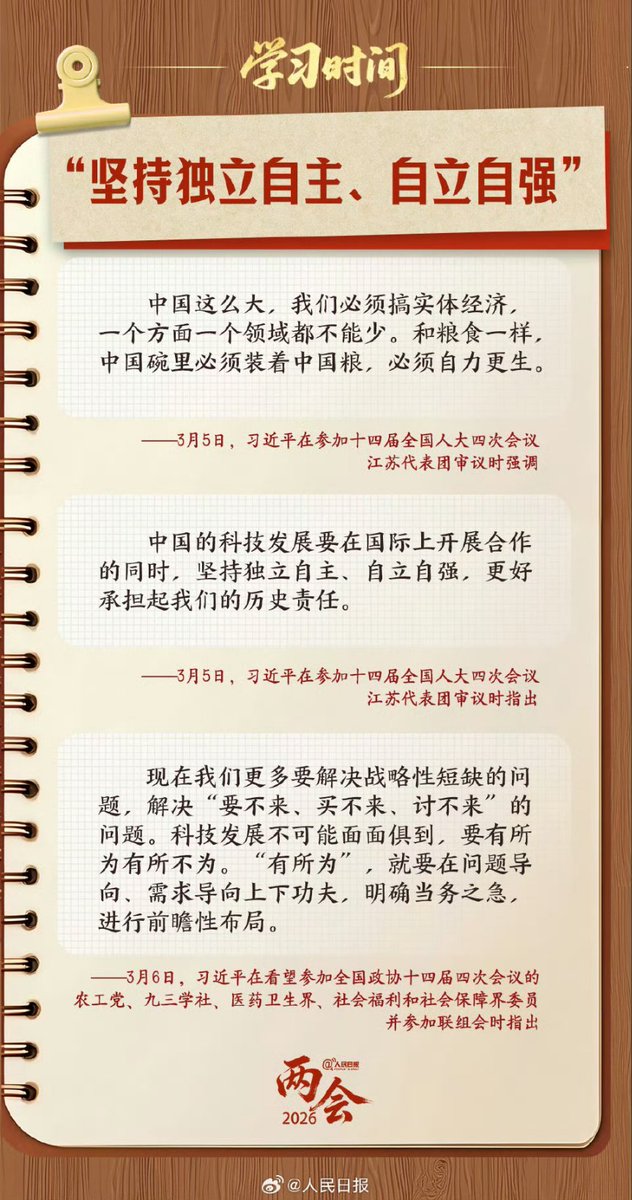 学习时间
“坚持独立自主、自立自强”
中国这么大，我们必须搞实体经济，
一个方面一个领域都不能少。和粮食一样，
中国碗里必须装着中国粮，必须自力更生。
——3月5日，习近平在参加十四届全国人大四次会议
江苏代表团审议时强调
中国的科技发展要在国际上开展合作
的同时，坚持独立自主、自立自强，更好
承担起我们的历史责任。
——3月5日，习近平在参加十四届全国人大四次会议
江苏代表团审议时指出
现在我们更多要解决战略性短缺的问
题，解决“要不来、买不来、讨不来”的
问题。科技发展不可能面面俱到，要有所
为有所不为。“有所为”，就要在问题导
向、需求导向上下功夫，明确当务之急，
进行前瞻性布局。
——3月6日，习近平在看望参加全国政协十四届四次会议的
农工党、九三学社、医药卫生界、社会福利和社会保障界委员
并参加联组会时指出
@人民日报
两会
2026
@人民日报